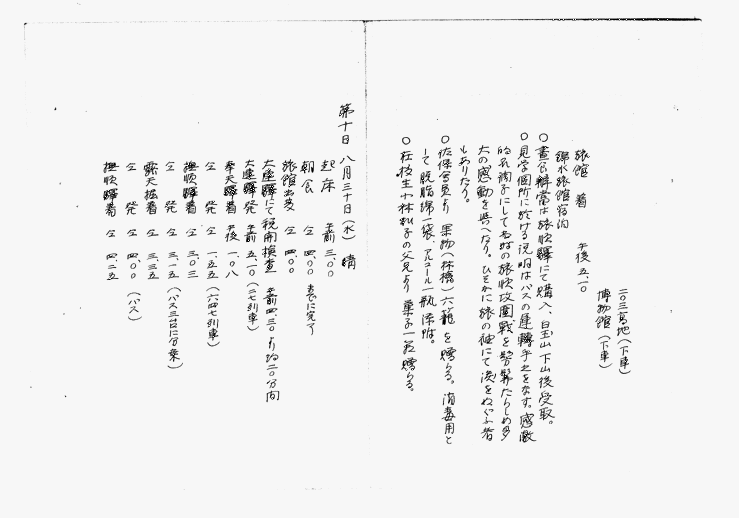 二〇三高地(下車)
博物館(下車)
旅館 着 午後 五、一〇
錦水旅館宿泊
〇晝食辨当は旅順驛にて購入、白玉山下山後受取。
〇見学個所に於ける説明はバスの運轉手之をなす。感激
的な調子にして
の旅順攻圍戦を髣髴たらしめ多
大の感動を与へたり。ひそかに旅の袖にて涙をぬぐふ者
もありたり。
〇佐保会員より果物(林檎)六籠を贈らる。消毒用と
して脱脂綿一袋、アルコール一瓶添附。
〇在校生小林
子の父兄より菓子一
贈らる。
第十日 八月三十日(水) 晴
起床 午前 三、〇〇
朝食 仝 四、〇〇 までに完了
旅館出発 仝 四、〇〇
大連驛にて税関検査 午前四、三〇より約二〇分間
大連驛発 午前 五、一〇(二七列車)
奉天驛着 午後 一、〇八
仝 発 仝 一、五五(六四七列車)
撫順驛着 仝 三、〇三
仝 発 仝 三、一五(バス三台に分乗)
露天掘着 仝 三、三五
仝 発 仝 四、〇〇(バス)
撫順驛着 仝 四、二五